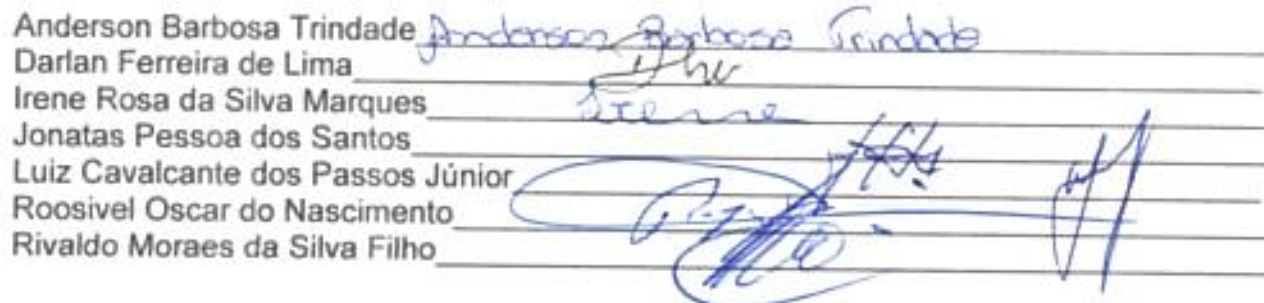 Anderson Barbosa Trindade Anderson Barbosa Trindade
Darlan Ferreira de Lima
Irene Rosa da Silva Marques Irene
Jonatas Pessoa dos Santos
Luiz Cavalcante dos Passos Júnior
Roosivel Oscar do Nascimento
Rivaldo Moraes da Silva Filho